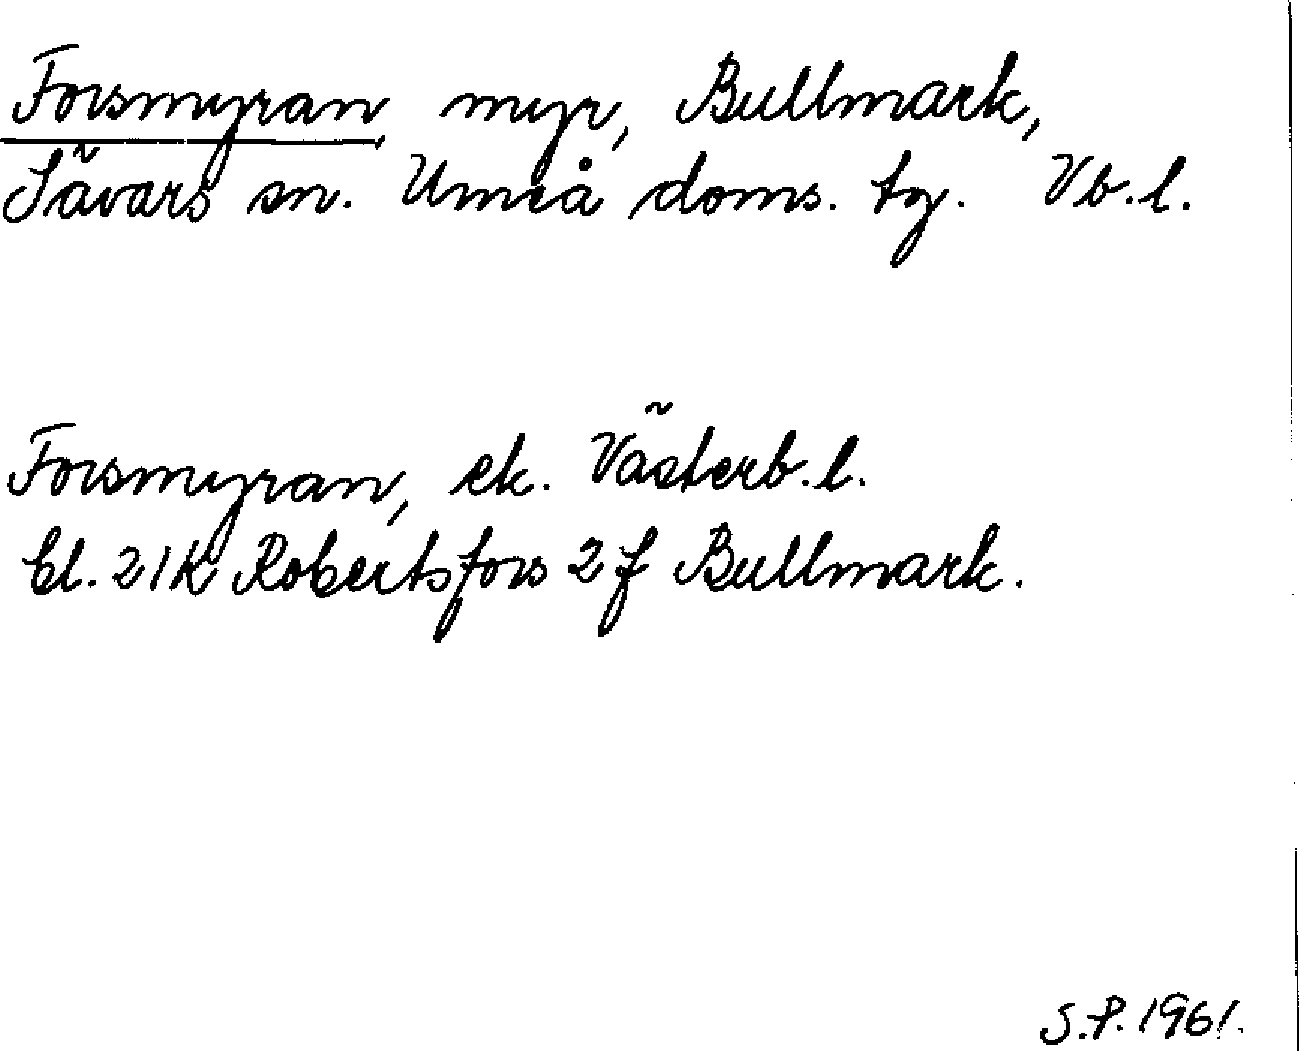 Forsmyran, myr, Bullmark,
Sävars sn. Umeå doms. tg. Vb.l.
Forsmyran, ek. Västerb.l.
bl. 21K Robertsfors 2f Bullmark.
S.P. 1961.